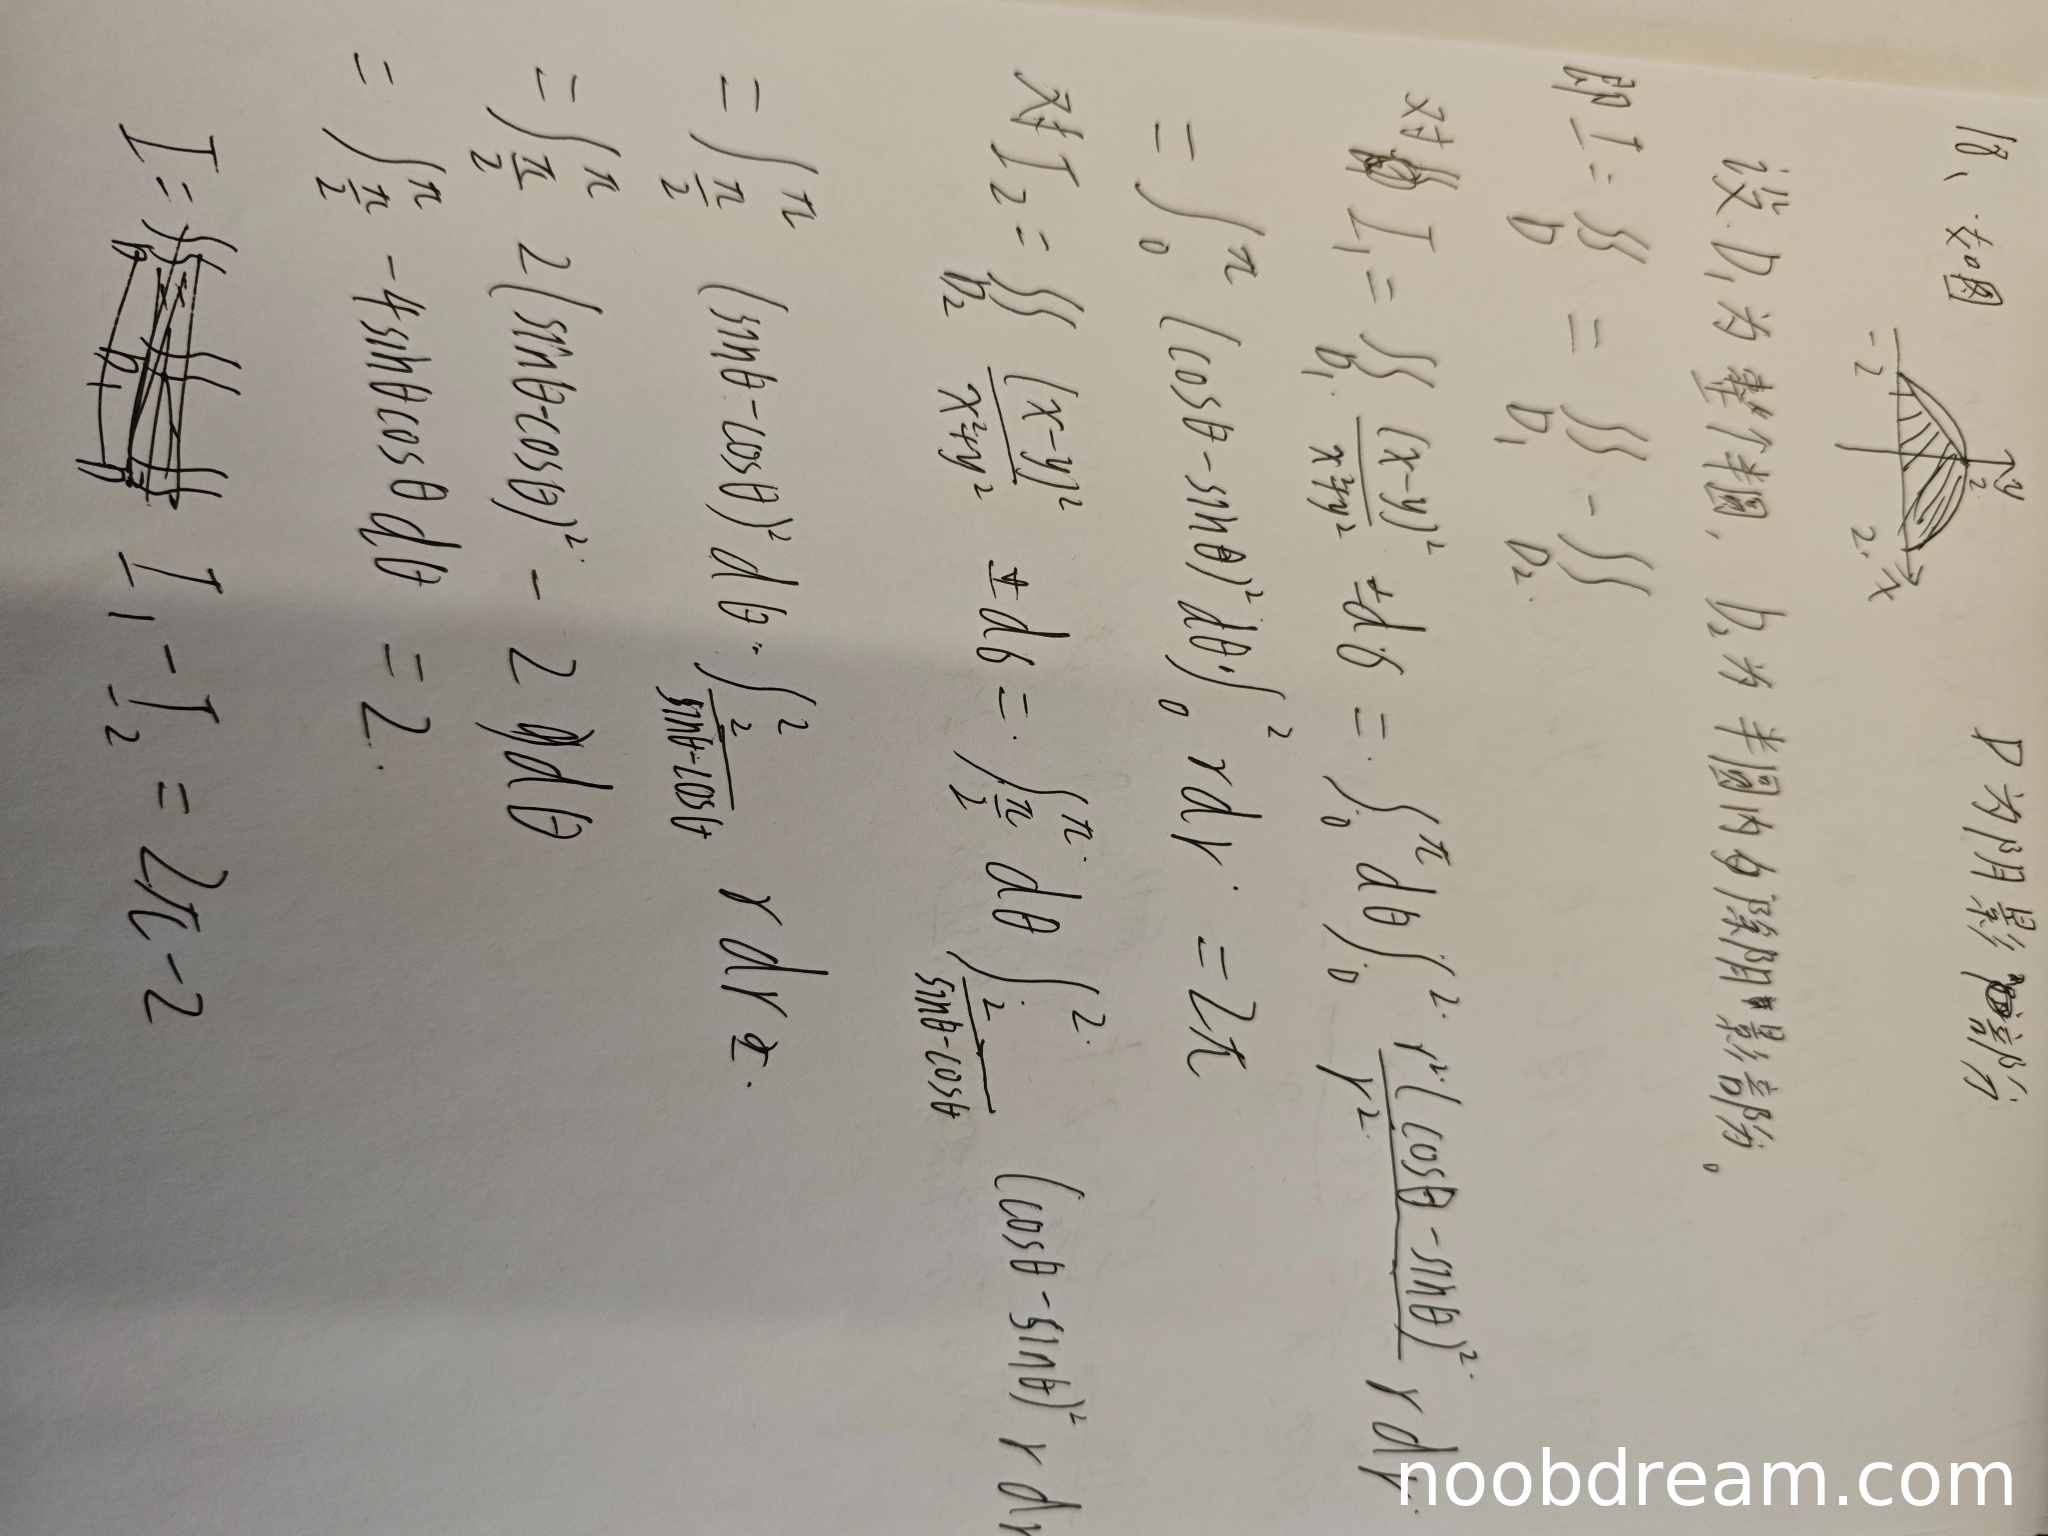 18、如图 -2 2 2 y x D为阴影部分
设D₁为整个半圆，D₂为半圆内的阴影部分。
即 I = ∬_D = ∬_{D₁} - ∬_{D₂}
对 I₁ = ∬_{D₁} (x-y)²/(x²+y²) dσ = ∫_0^π dθ ∫_0^2 r²(cosθ-sinθ)²/r² r dr
= ∫_0^π (cosθ-sinθ)² dθ · ∫_0^2 r dr = 2π
对 I₂ = ∬_{D₂} (x-y)²/(x²+y²) dσ = ∫_{π/2}^π dθ ∫_{2/(sinθ-cosθ)}^2 (cosθ-sinθ)² r dr
= ∫_{π/2}^π (sinθ-cosθ)² dθ · ∫_{2/(sinθ-cosθ)}^2 r dr
= ∫_{π/2}^π 2(sinθ-cosθ)² - 2 dθ
= ∫_{π/2}^π -4sinθcosθ dθ = 2.
I = I₁ - I₂ = 2π-2
noobdream.com